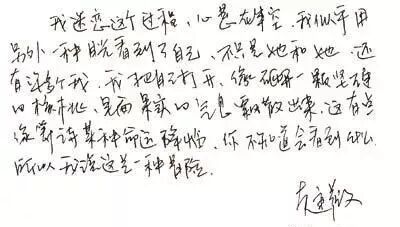 我迷恋这个过程，心悬在半空，我似乎用
另外一种眼光看到了自己，不只是她和她，还
有许多个我，我把自己打开，像砸开一颗坚硬
的核桃，里面果实的气息飘散出来，这有点
像等待某种命运降临，你不知道会看到什么
所以我说这是一种冒险.